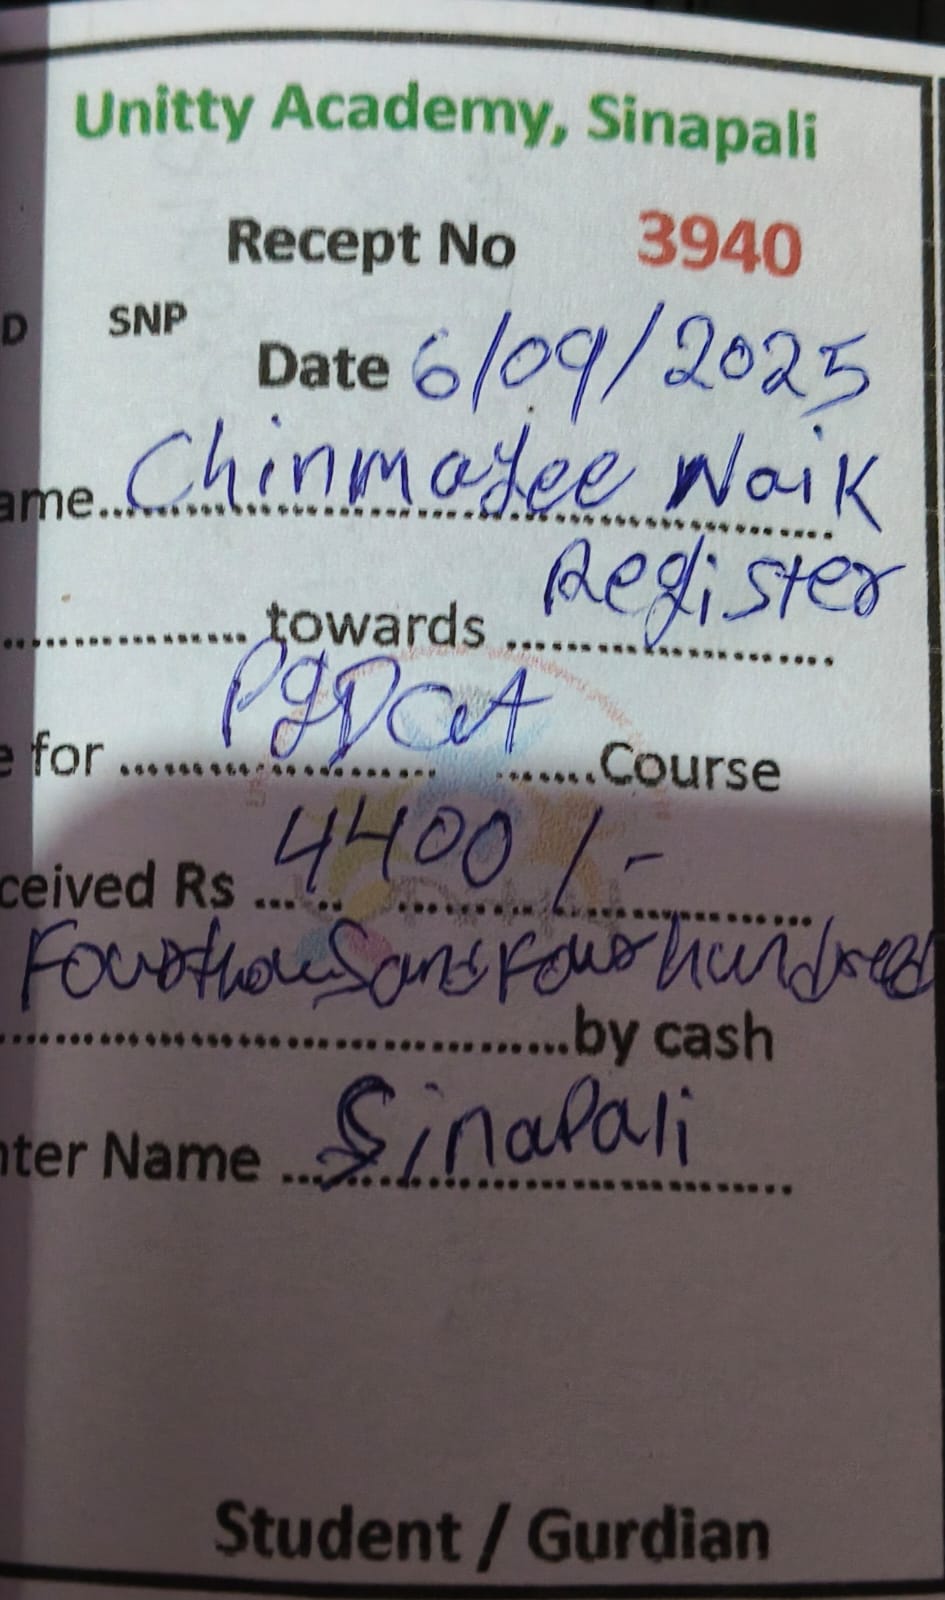 Unitty Academy, Sinapali
Recept No 3940
D SNP
Date 6/09/2025
ame... Chinmayee Naik
............... towards ............... Register
e for ............... PGDCA ...............Course
ceived Rs ... 4400/-
Fourthousand Four hundred
...............by cash
nter Name ... Sinapali
Student / Gurdian